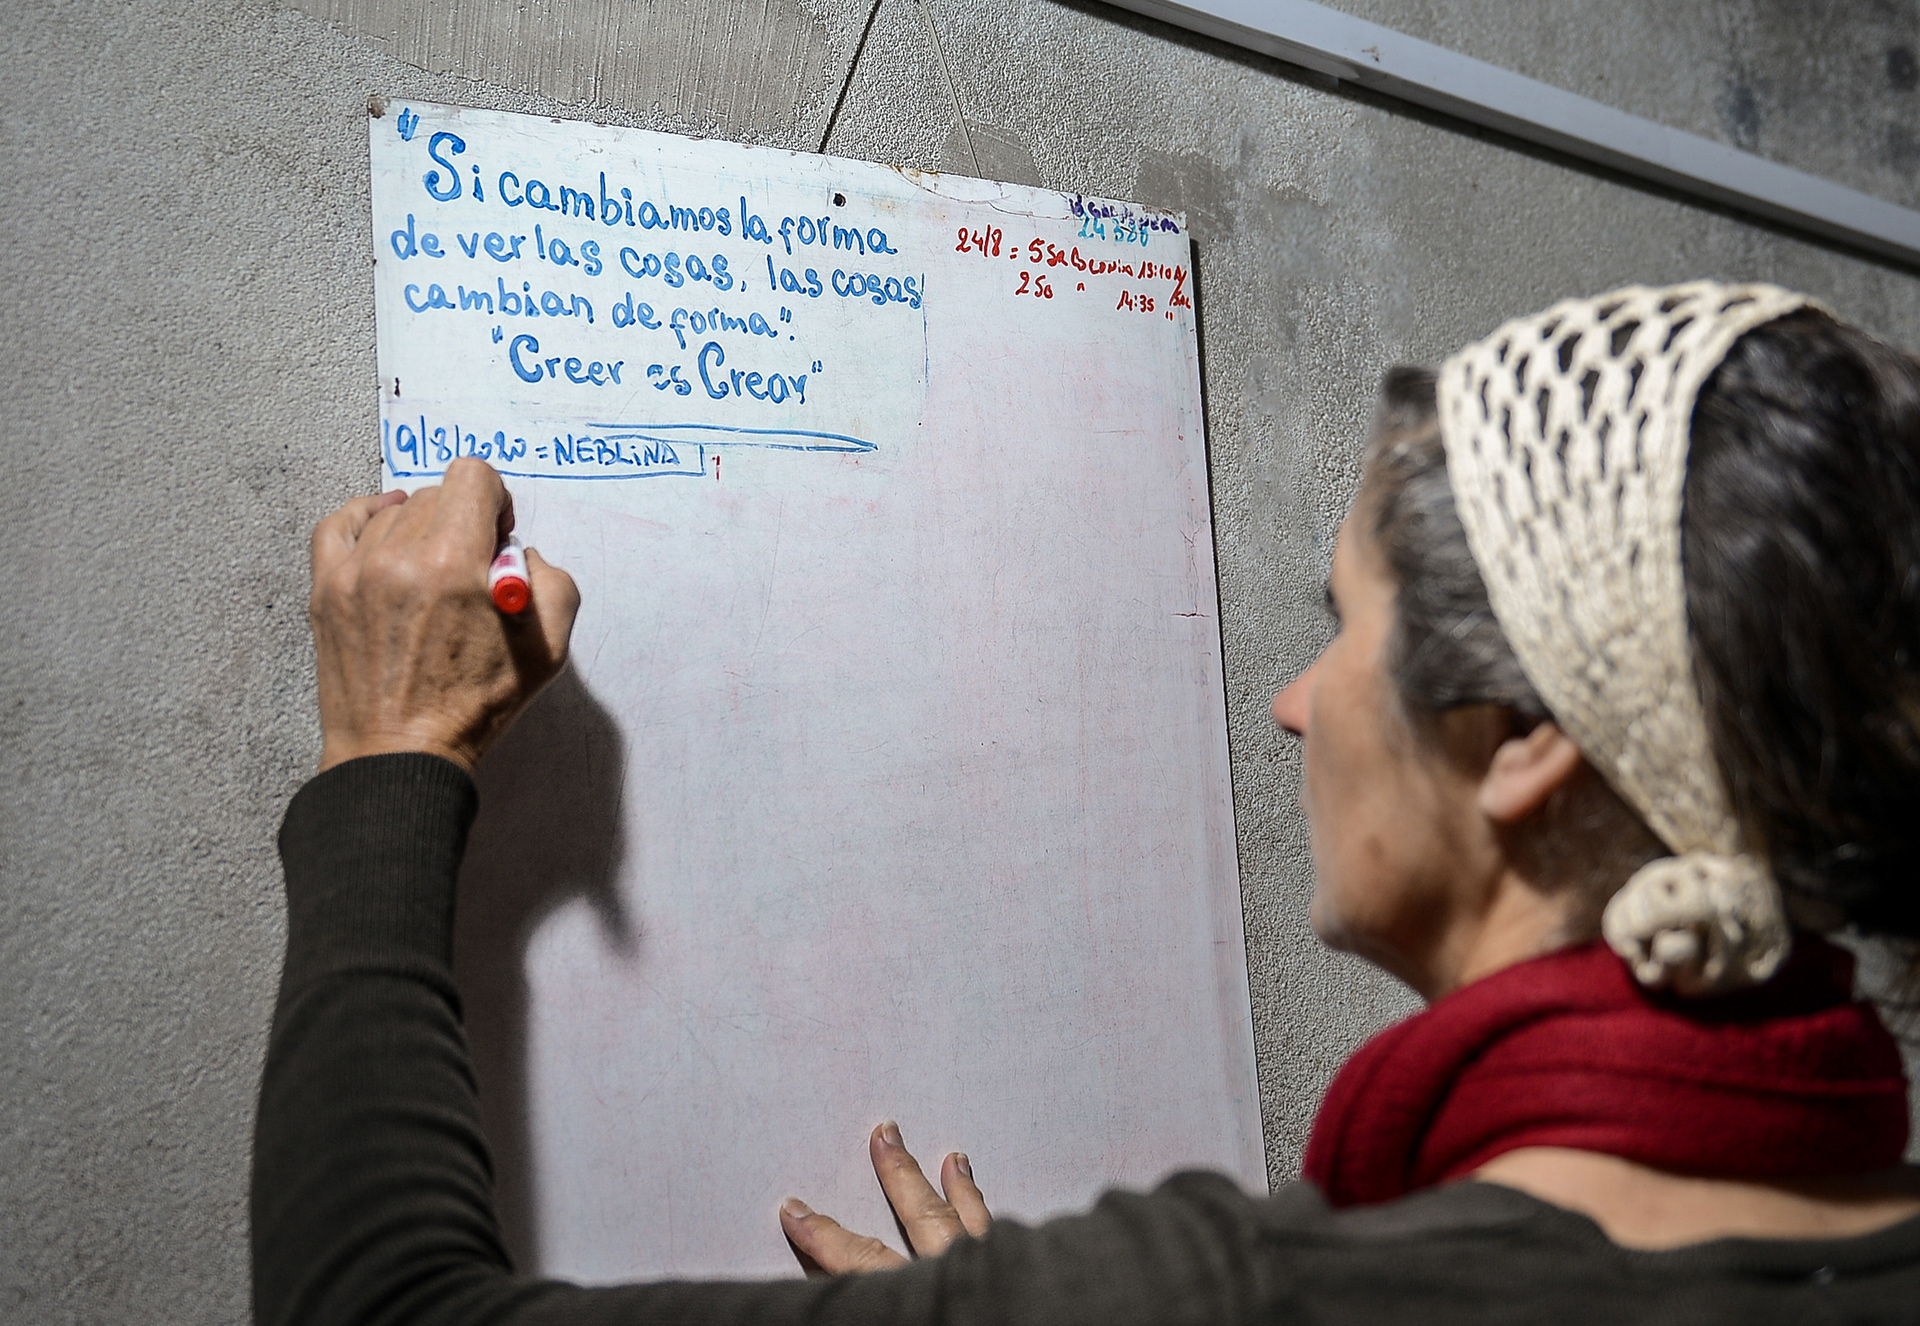 "Si cambiamos la forma
de ver las cosas, las cosas
cambian de forma".
"Creer es Crear"
9/8/2020 = NEBLINA
24 380
24/8 = 5
250 " 14:35